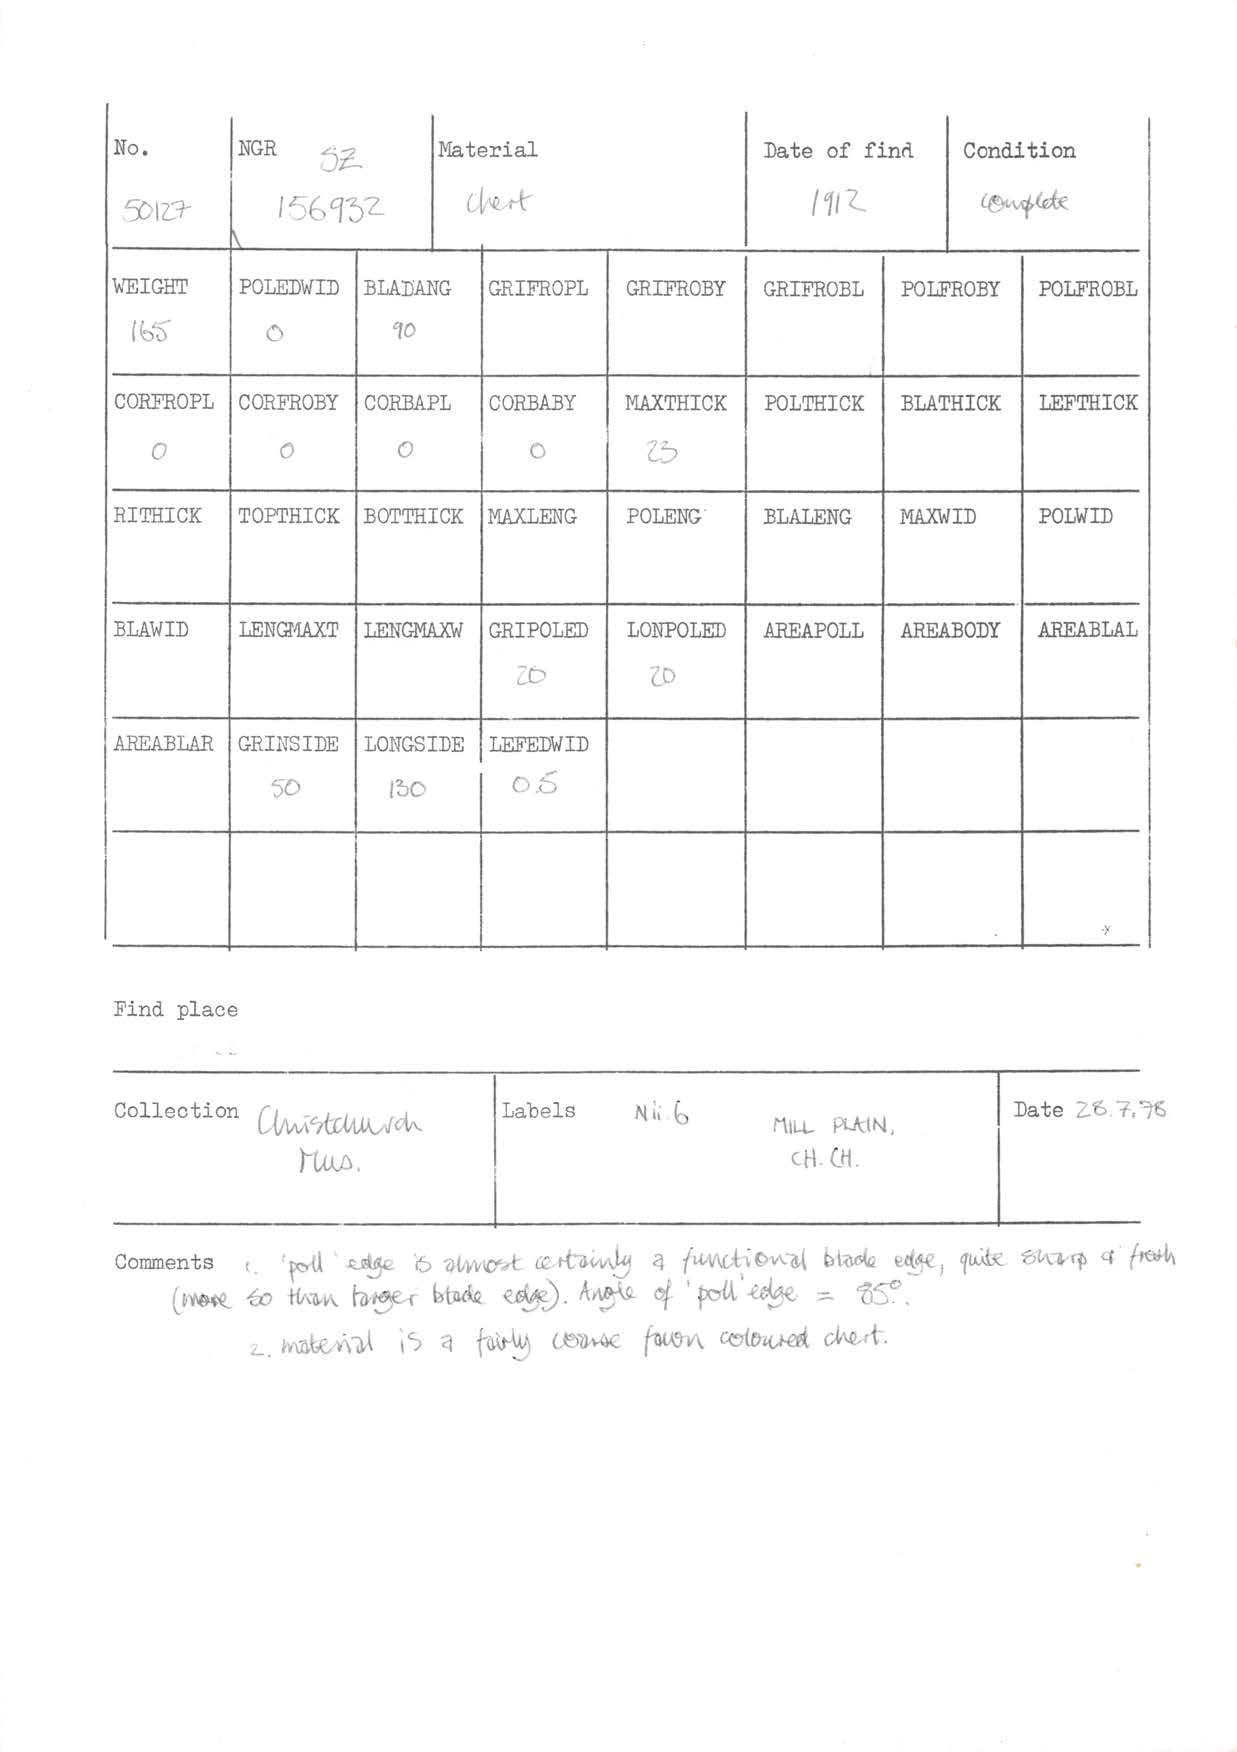 No. NGR SZ Material Date of find Condition
50127 156932 chert 1912 complete
WEIGHT POLEDWID BLADANG GRIFROPL GRIFROBY GRIFROBL POLFROBY POLFROBL
165 0 90
CORFROPL CORFROBY CORBAPL CORBABY MAXTHICK POLTHICK BLATHICK LEFTHICK
0 0 0 0 23
RITHICK TOPTHICK BOTTHICK MAXLENG POLENG BLALENG MAXWID POLWID
BLAWID LENGMAXT LENGMAXW GRIPOLED LONPOLED AREAPOLL AREABODY AREABLAL
20 20
AREABLAR GRINSIDE LONGSIDE LEFEDWID
50 130 0.5
Find place
Collection Christchurch Labels Nii.6 MILL PLAIN, Date 28.7.78
Mus. CH. CH.
Comments 1. 'poll' edge is almost certainly a functional blade edge, quite sharp & fresh
(more so than larger blade edge). Angle of 'poll' edge = 85°.
2. material is a fairly coarse fawn coloured chert.